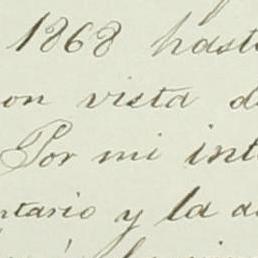 1868 hasta
con vista d
Por mi int
ntario y la a